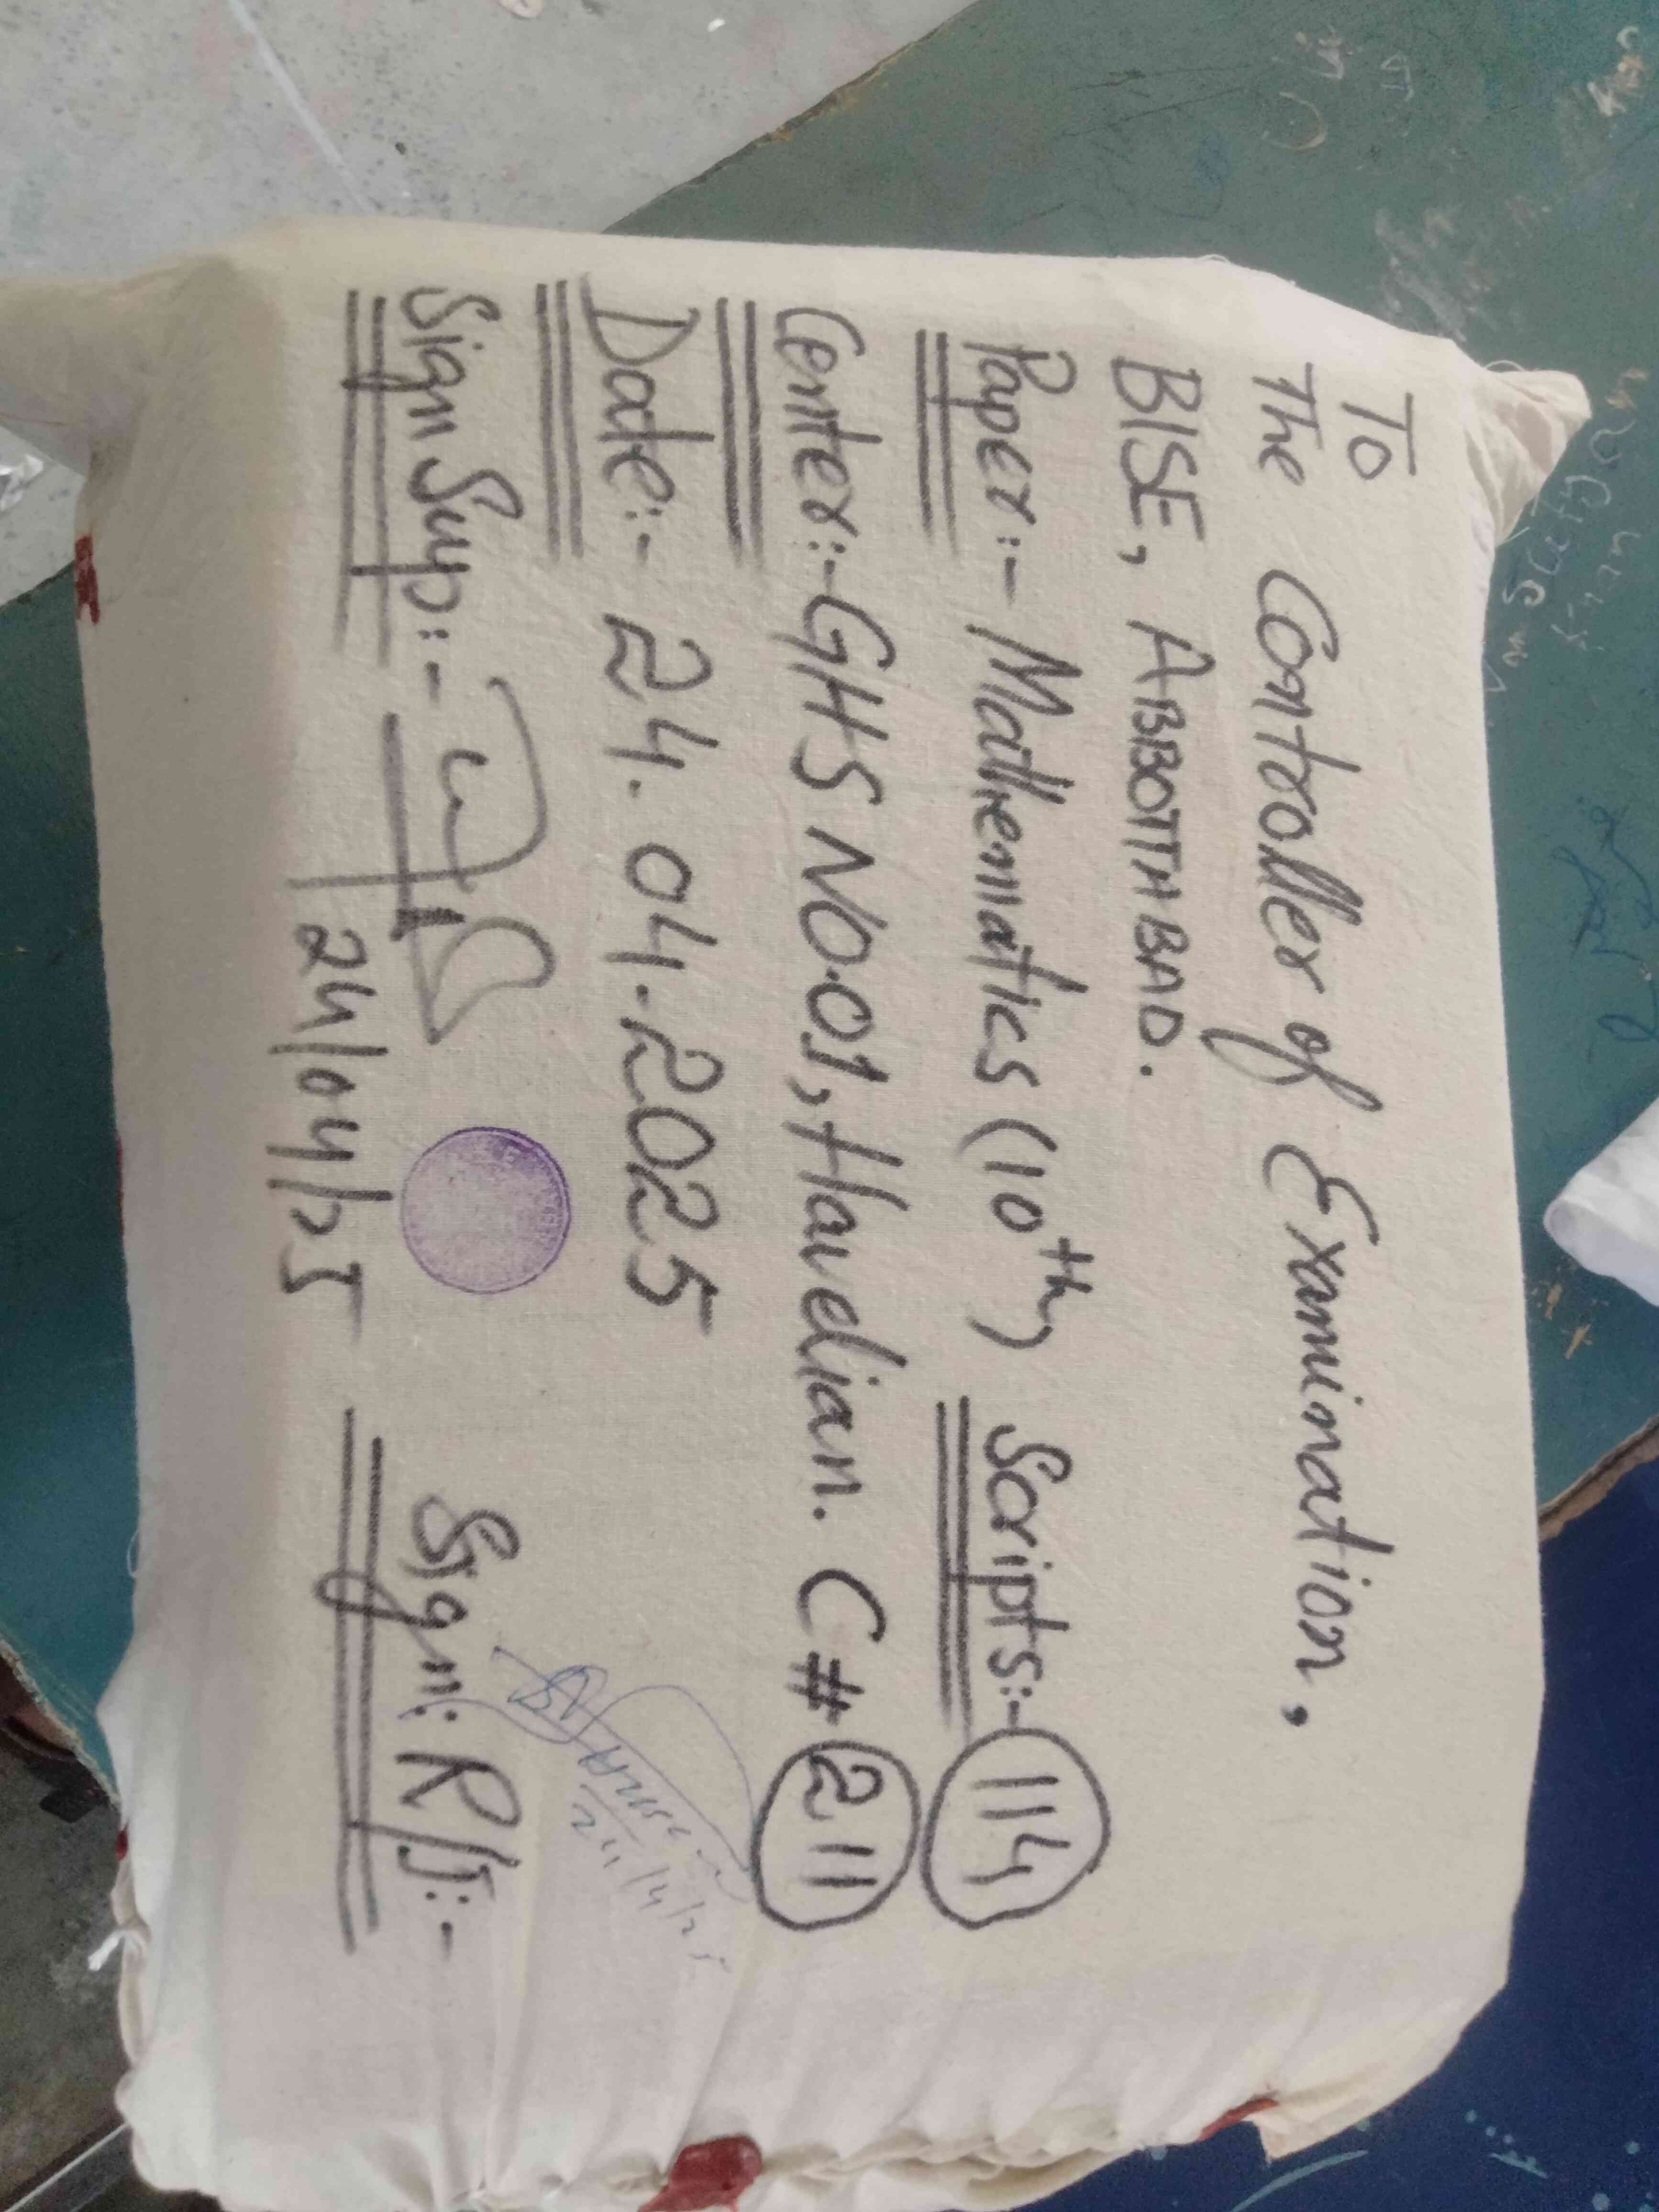 To
The Controller of Examination,
BISE, ABBOTTABAD.
Paper:- Mathematics (10th) Scripts:- 114
Center:- GHS NO.01, Havelian. C# 211
Date:- 24.04.2025
Sign Sup:- Sign: R/I:-
24/04/25
24/4/25